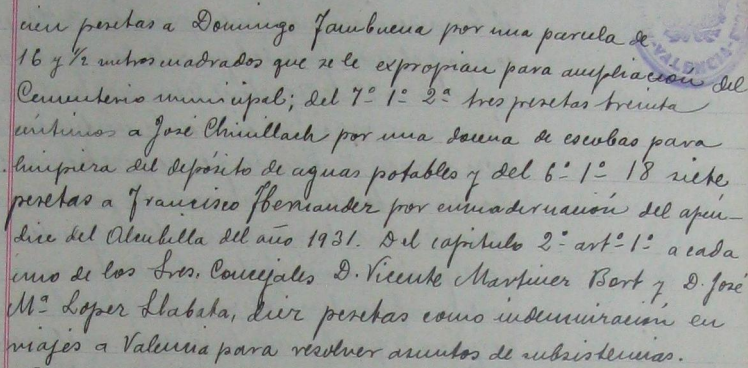 cien pesetas a Domingo Tambuena por una parcela de
16 y ½ metros cuadrados que se le expropian para ampliación del
Cementerio municipal; del 7º 1º 2ª tres pesetas treinta
céntimos a José Chinillach por una docena de escobas para
limpieza del depósito de aguas potables y del 6º 1º 18 siete
pesetas a Francisco Hernandez por encuadernación del apén-
dice del Alcubilla del año 1931. Del capitulo 2º artº 1º a cada
uno de los Sres. Concejales D. Vicente Martinez Bort y D. José
Mª Lopez Llabata, diez pesetas como indemnización en
viajes a Valencia para resolver asuntos de subsistencias.
VALENCIA